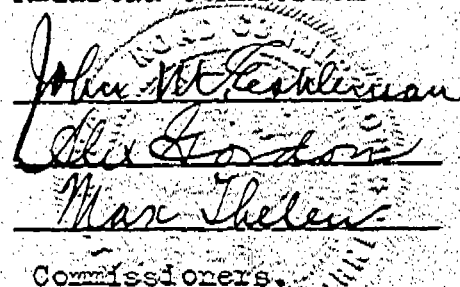 John M. Eshleman
Alex Gordon
Max Thelen
Commissioners.